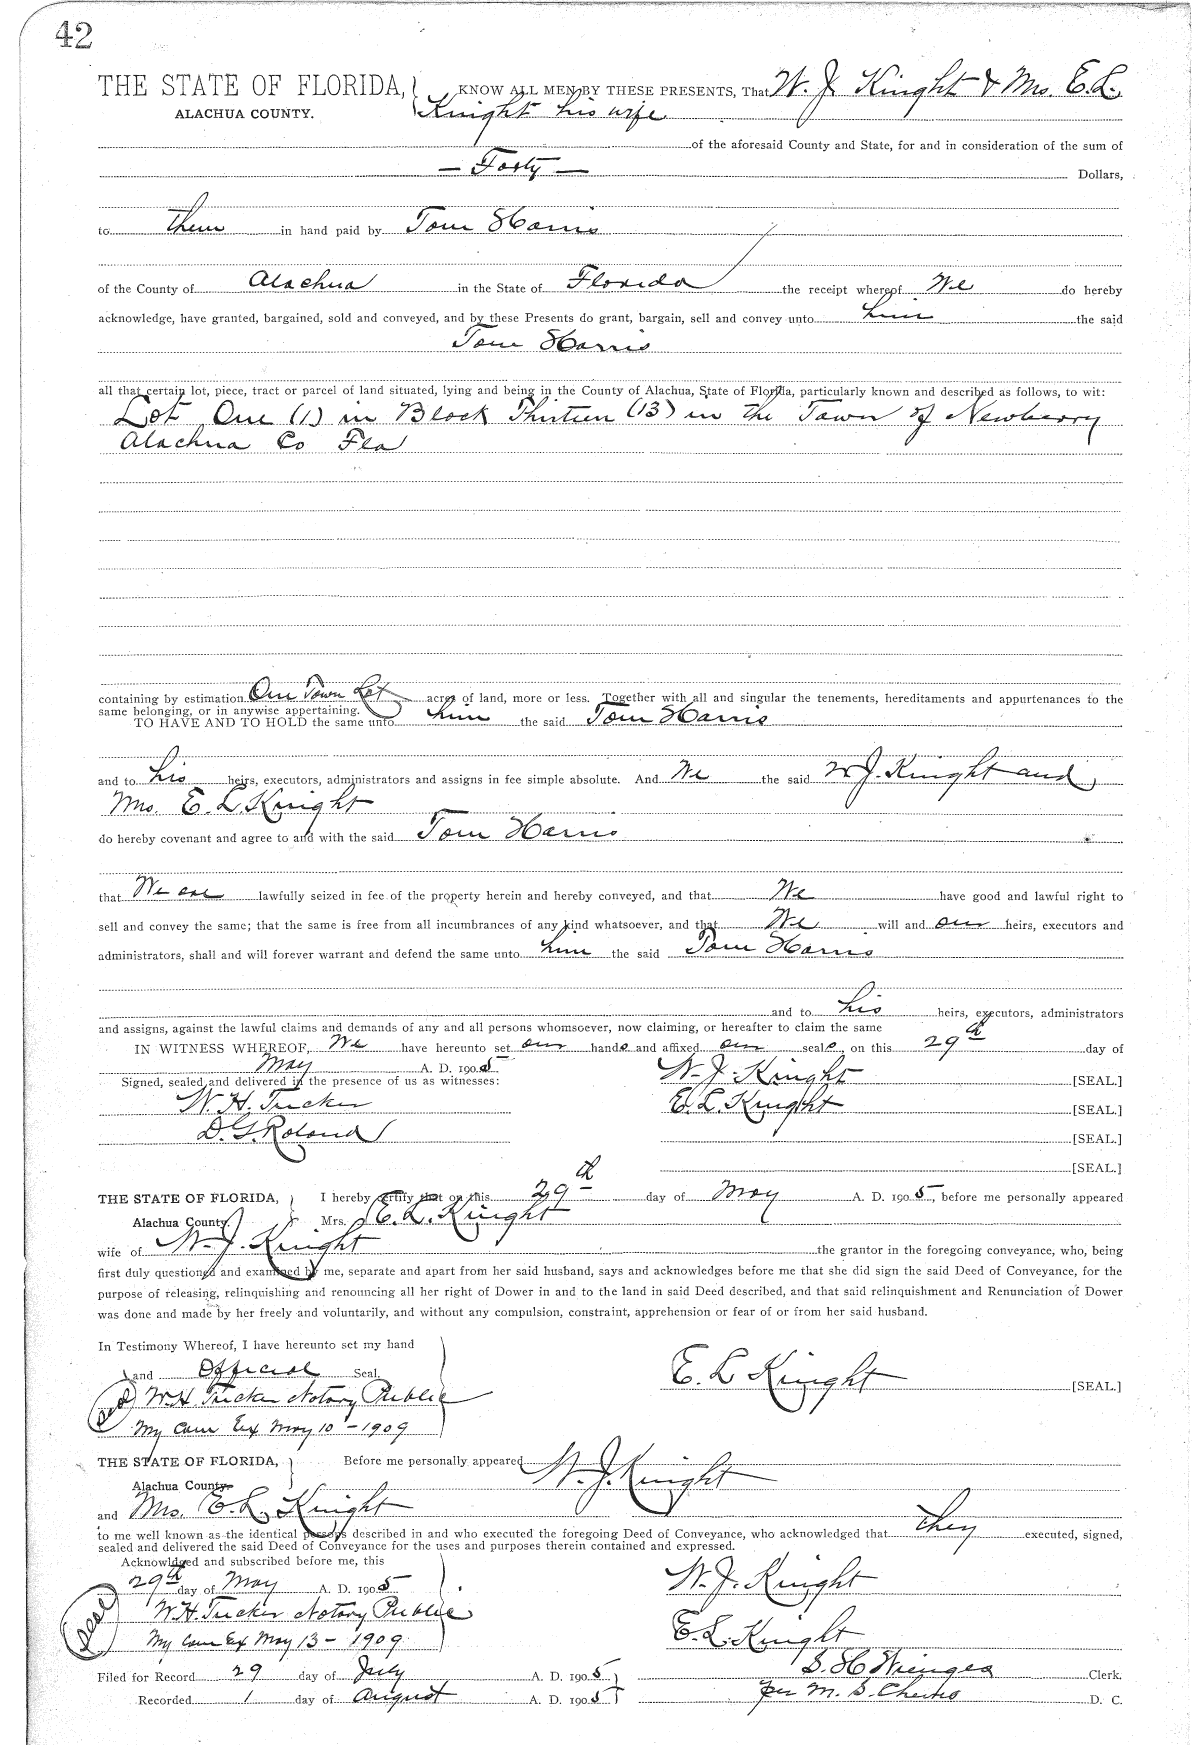 42
THE STATE OF FLORIDA, KNOW ALL MEN BY THESE PRESENTS, That W. J. Knight & Mrs. E. L.
ALACHUA COUNTY. Knight his wife
of the aforesaid County and State, for and in consideration of the sum of
— Forty — Dollars,
to them in hand paid by Tom Harris
of the County of Alachua in the State of Florida the receipt whereof We do hereby
acknowledge, have granted, bargained, sold and conveyed, and by these Presents do grant, bargain, sell and convey unto him the said
Tom Harris
all that certain lot, piece, tract or parcel of land situated, lying and being in the County of Alachua, State of Florida, particularly known and described as follows, to wit:
Lot One (1) in Block Thirteen (13) in the Town of Newberry
Alachua Co Fla
containing by estimation One Town Lot acres of land, more or less. Together with all and singular the tenements, hereditaments and appurtenances to the
same belonging, or in anywise appertaining.
TO HAVE AND TO HOLD the same unto him the said Tom Harris
and to his heirs, executors, administrators and assigns in fee simple absolute. And We the said W J. Knight and
Mrs. E. L. Knight
do hereby covenant and agree to and with the said Tom Harris
that We are lawfully seized in fee of the property herein and hereby conveyed, and that We have good and lawful right to
sell and convey the same; that the same is free from all incumbrances of any kind whatsoever, and that We will and our heirs, executors and
administrators, shall and will forever warrant and defend the same unto him the said Tom Harris
and to his heirs, executors, administrators
and assigns, against the lawful claims and demands of any and all persons whomsoever, now claiming, or hereafter to claim the same
IN WITNESS WHEREOF, We have hereunto set our hands and affixed our seals, on this 29th day of
May A. D. 1905 W. J. Knight [SEAL.]
Signed, sealed and delivered in the presence of us as witnesses:
W. H. Tucker E. L. Knight [SEAL.]
D. G. Roland [SEAL.]
[SEAL.]
THE STATE OF FLORIDA, I hereby certify that on this 29th day of May A. D. 1905, before me personally appeared
Alachua County. Mrs. E. L. Knight
wife of W. J. Knight the grantor in the foregoing conveyance, who, being
first duly questioned and examined by me, separate and apart from her said husband, says and acknowledges before me that she did sign the said Deed of Conveyance, for the
purpose of releasing, relinquishing and renouncing all her right of Dower in and to the land in said Deed described, and that said relinquishment and Renunciation of Dower
was done and made by her freely and voluntarily, and without any compulsion, constraint, apprehension or fear of or from her said husband.
In Testimony Whereof, I have hereunto set my hand
and Official Seal. E. L Knight [SEAL.]
Seal W. H. Tucker Notary Public
My Com Ex May 10 - 1909
THE STATE OF FLORIDA, Before me personally appeared W. J. Knight
Alachua County.
and Mrs. E. L. Knight
to me well known as the identical persons described in and who executed the foregoing Deed of Conveyance, who acknowledged that they executed, signed,
sealed and delivered the said Deed of Conveyance for the uses and purposes therein contained and expressed.
Acknowldged and subscribed before me, this
29th day of May A. D. 1905 W. J. Knight
Seal W. H. Tucker Notary Public
My Com Ex May 13 - 1909 E. L. Knight
Filed for Record 29 day of July A. D. 1905 S. H. Wienges Clerk.
Recorded 1 day of August A. D. 1905 per M. S. D. C.